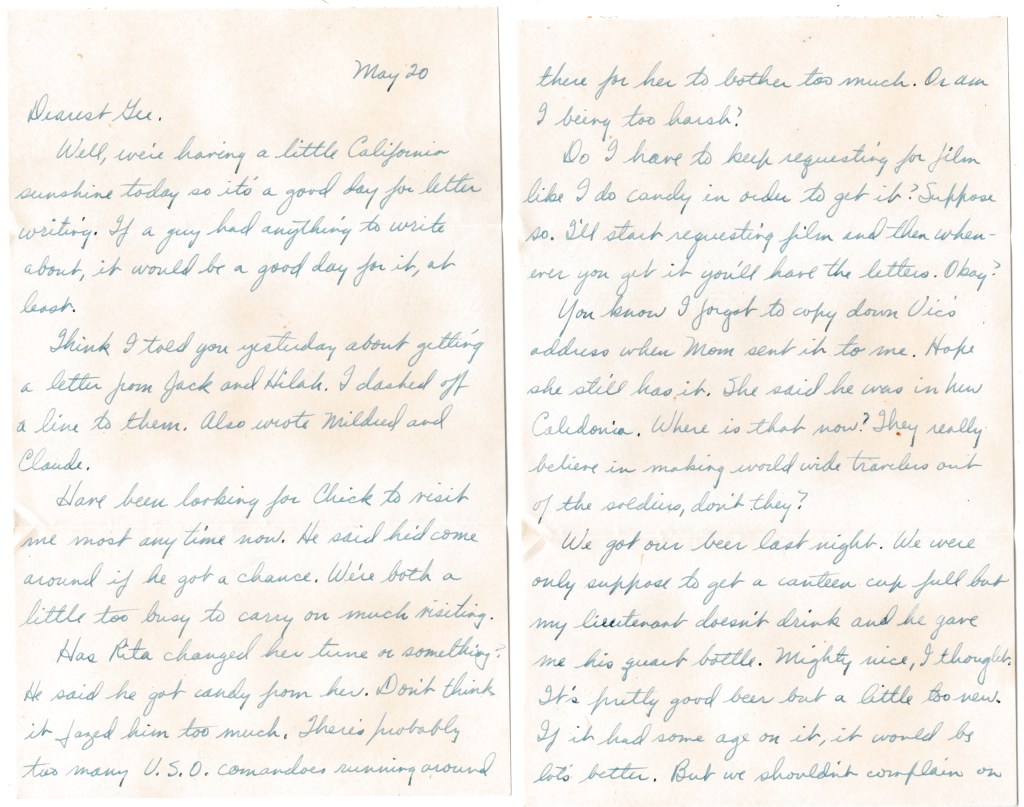 May 20
Dearest Gee.
Well, we're having a little California
sunshine today so it's a good day for letter
writing. If a guy had anything to write
about, it would be a good day for it, at
least.
Think I told you yesterday about getting
a letter from Jack and Hilah. I dashed off
a line to them. Also wrote Mildred and
Claude.
Have been looking for Chick to visit
me most any time now. He said he'd come
around if he got a chance. We're both a
little too busy to carry on much visiting.
Has Rita changed her tune or something?
He said he got candy from her. Don't think
it fazed him too much. There's probably
too many U.S.O. comandoes running around
there for her to bother too much. Or am
I being too harsh?
Do I have to keep requesting for film
like I do candy in order to get it? Suppose
so. I'll start requesting film and then when-
ever you get it you'll have the letters. Okay?
You know I forgot to copy down Vic's
address when Mom sent it to me. Hope
she still has it. She said he was in New
Caledonia. Where is that now? They really
believe in making world wide travelers out
of the soldiers, don't they?
We got our beer last night. We were
only suppose to get a canteen cup full but
my lieutenant doesn't drink and he gave
me his quart bottle. Mighty nice, I thought.
It's pretty good beer but a little too new.
If it had some age on it, it would be
lots better. But we shouldn't complain on